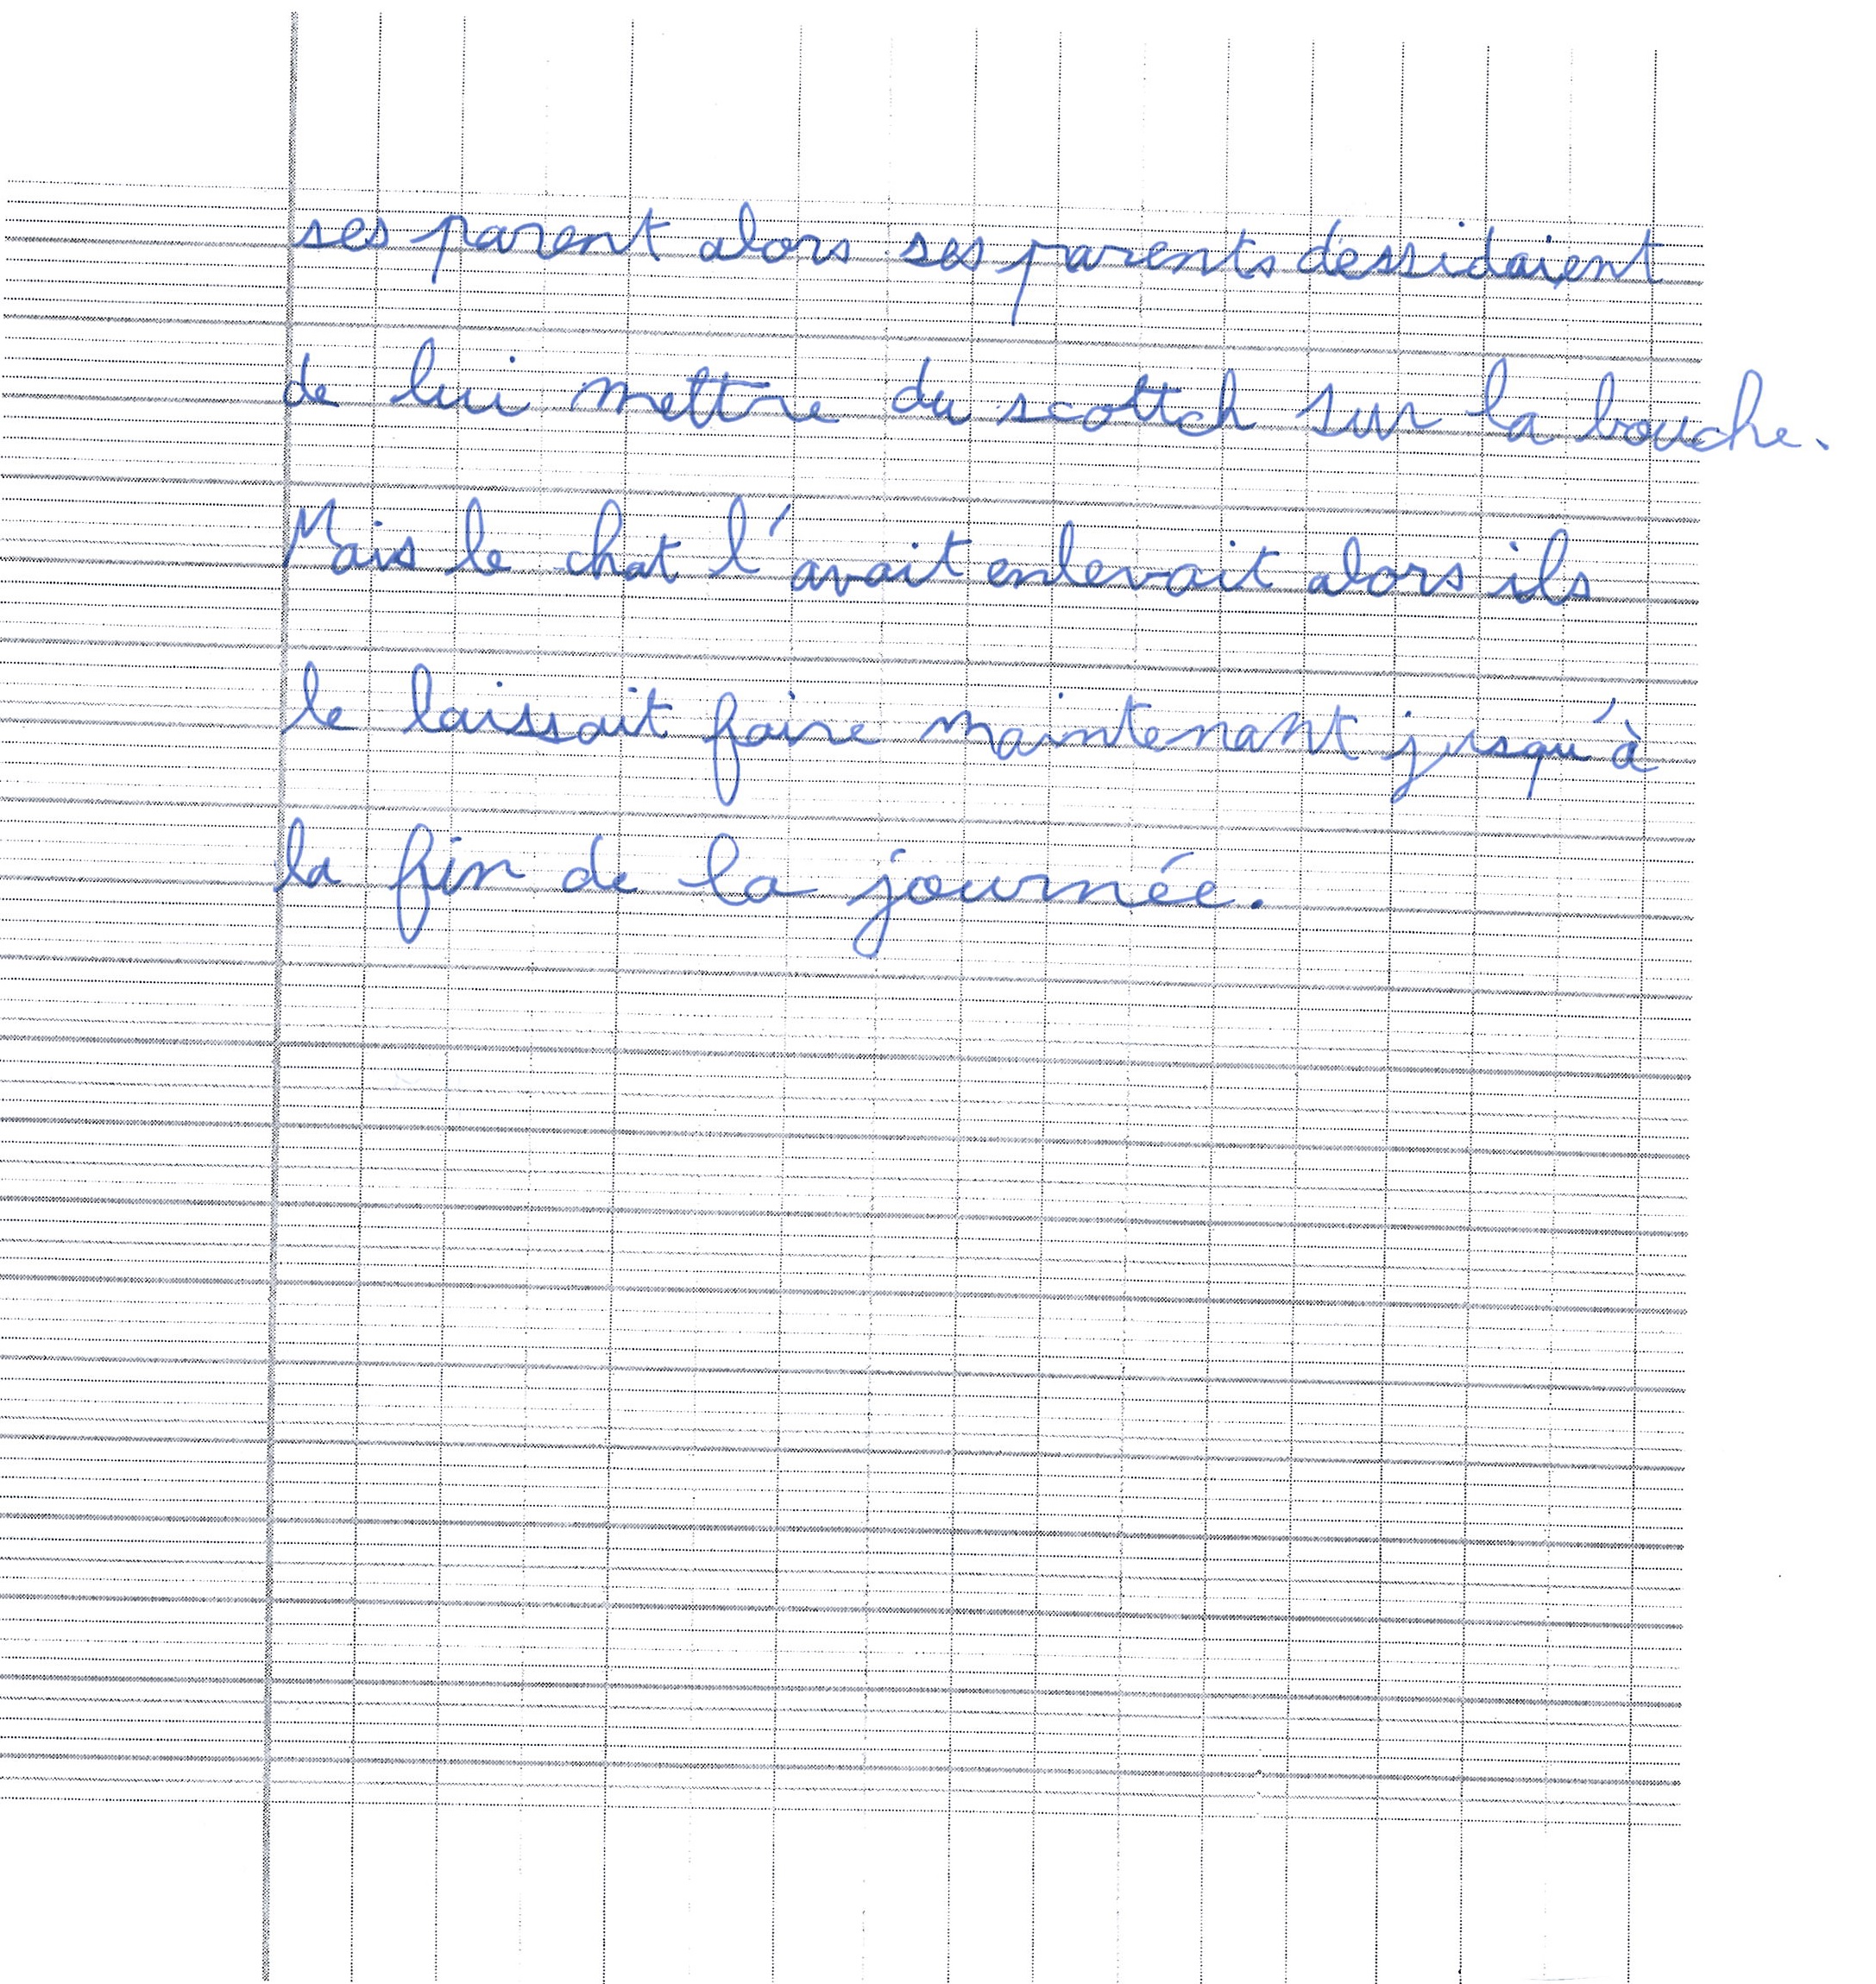 ses parent alors ses parents dessidaient
de lui mettre du scottch sur la bouche.
Mais le chat l'avait enlevait alors ils
le laissait faire maintenant jusqu'à
la fin de la journée.